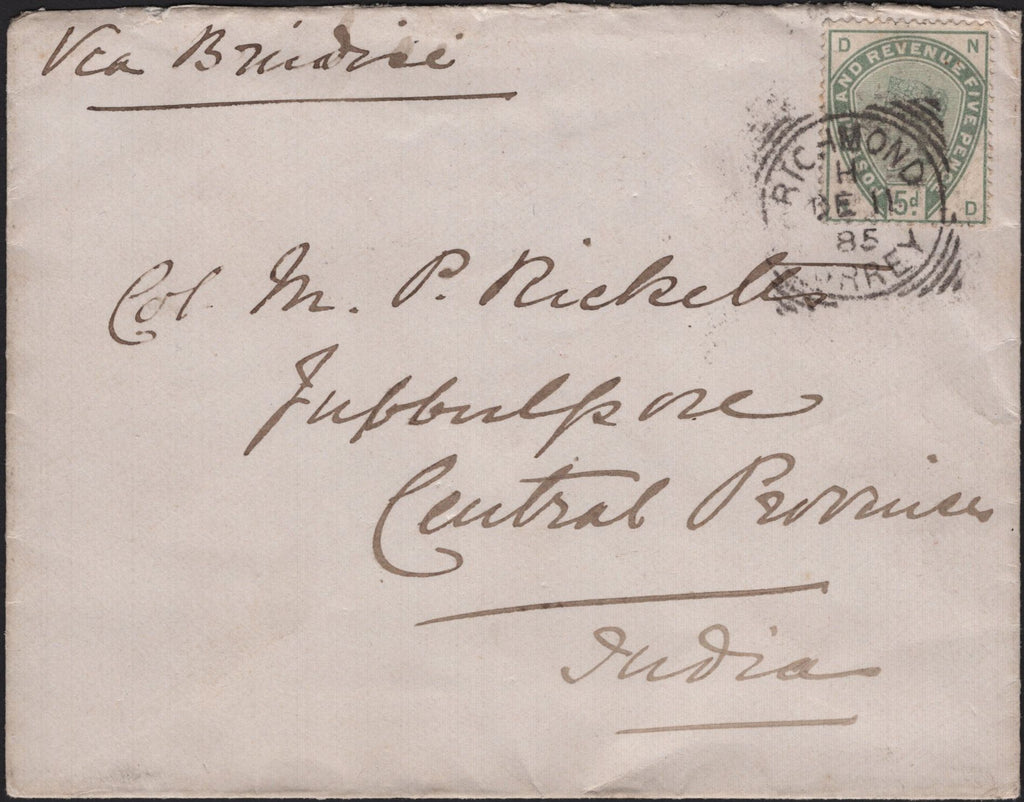 Via Brindisi
D N
POSTAGE AND REVENUE FIVE PENCE
5d
D
RICHMOND
H
DE 11
85
SURREY
Col. M. P. Ricketts
Jubbulpore
Central Provinces
India